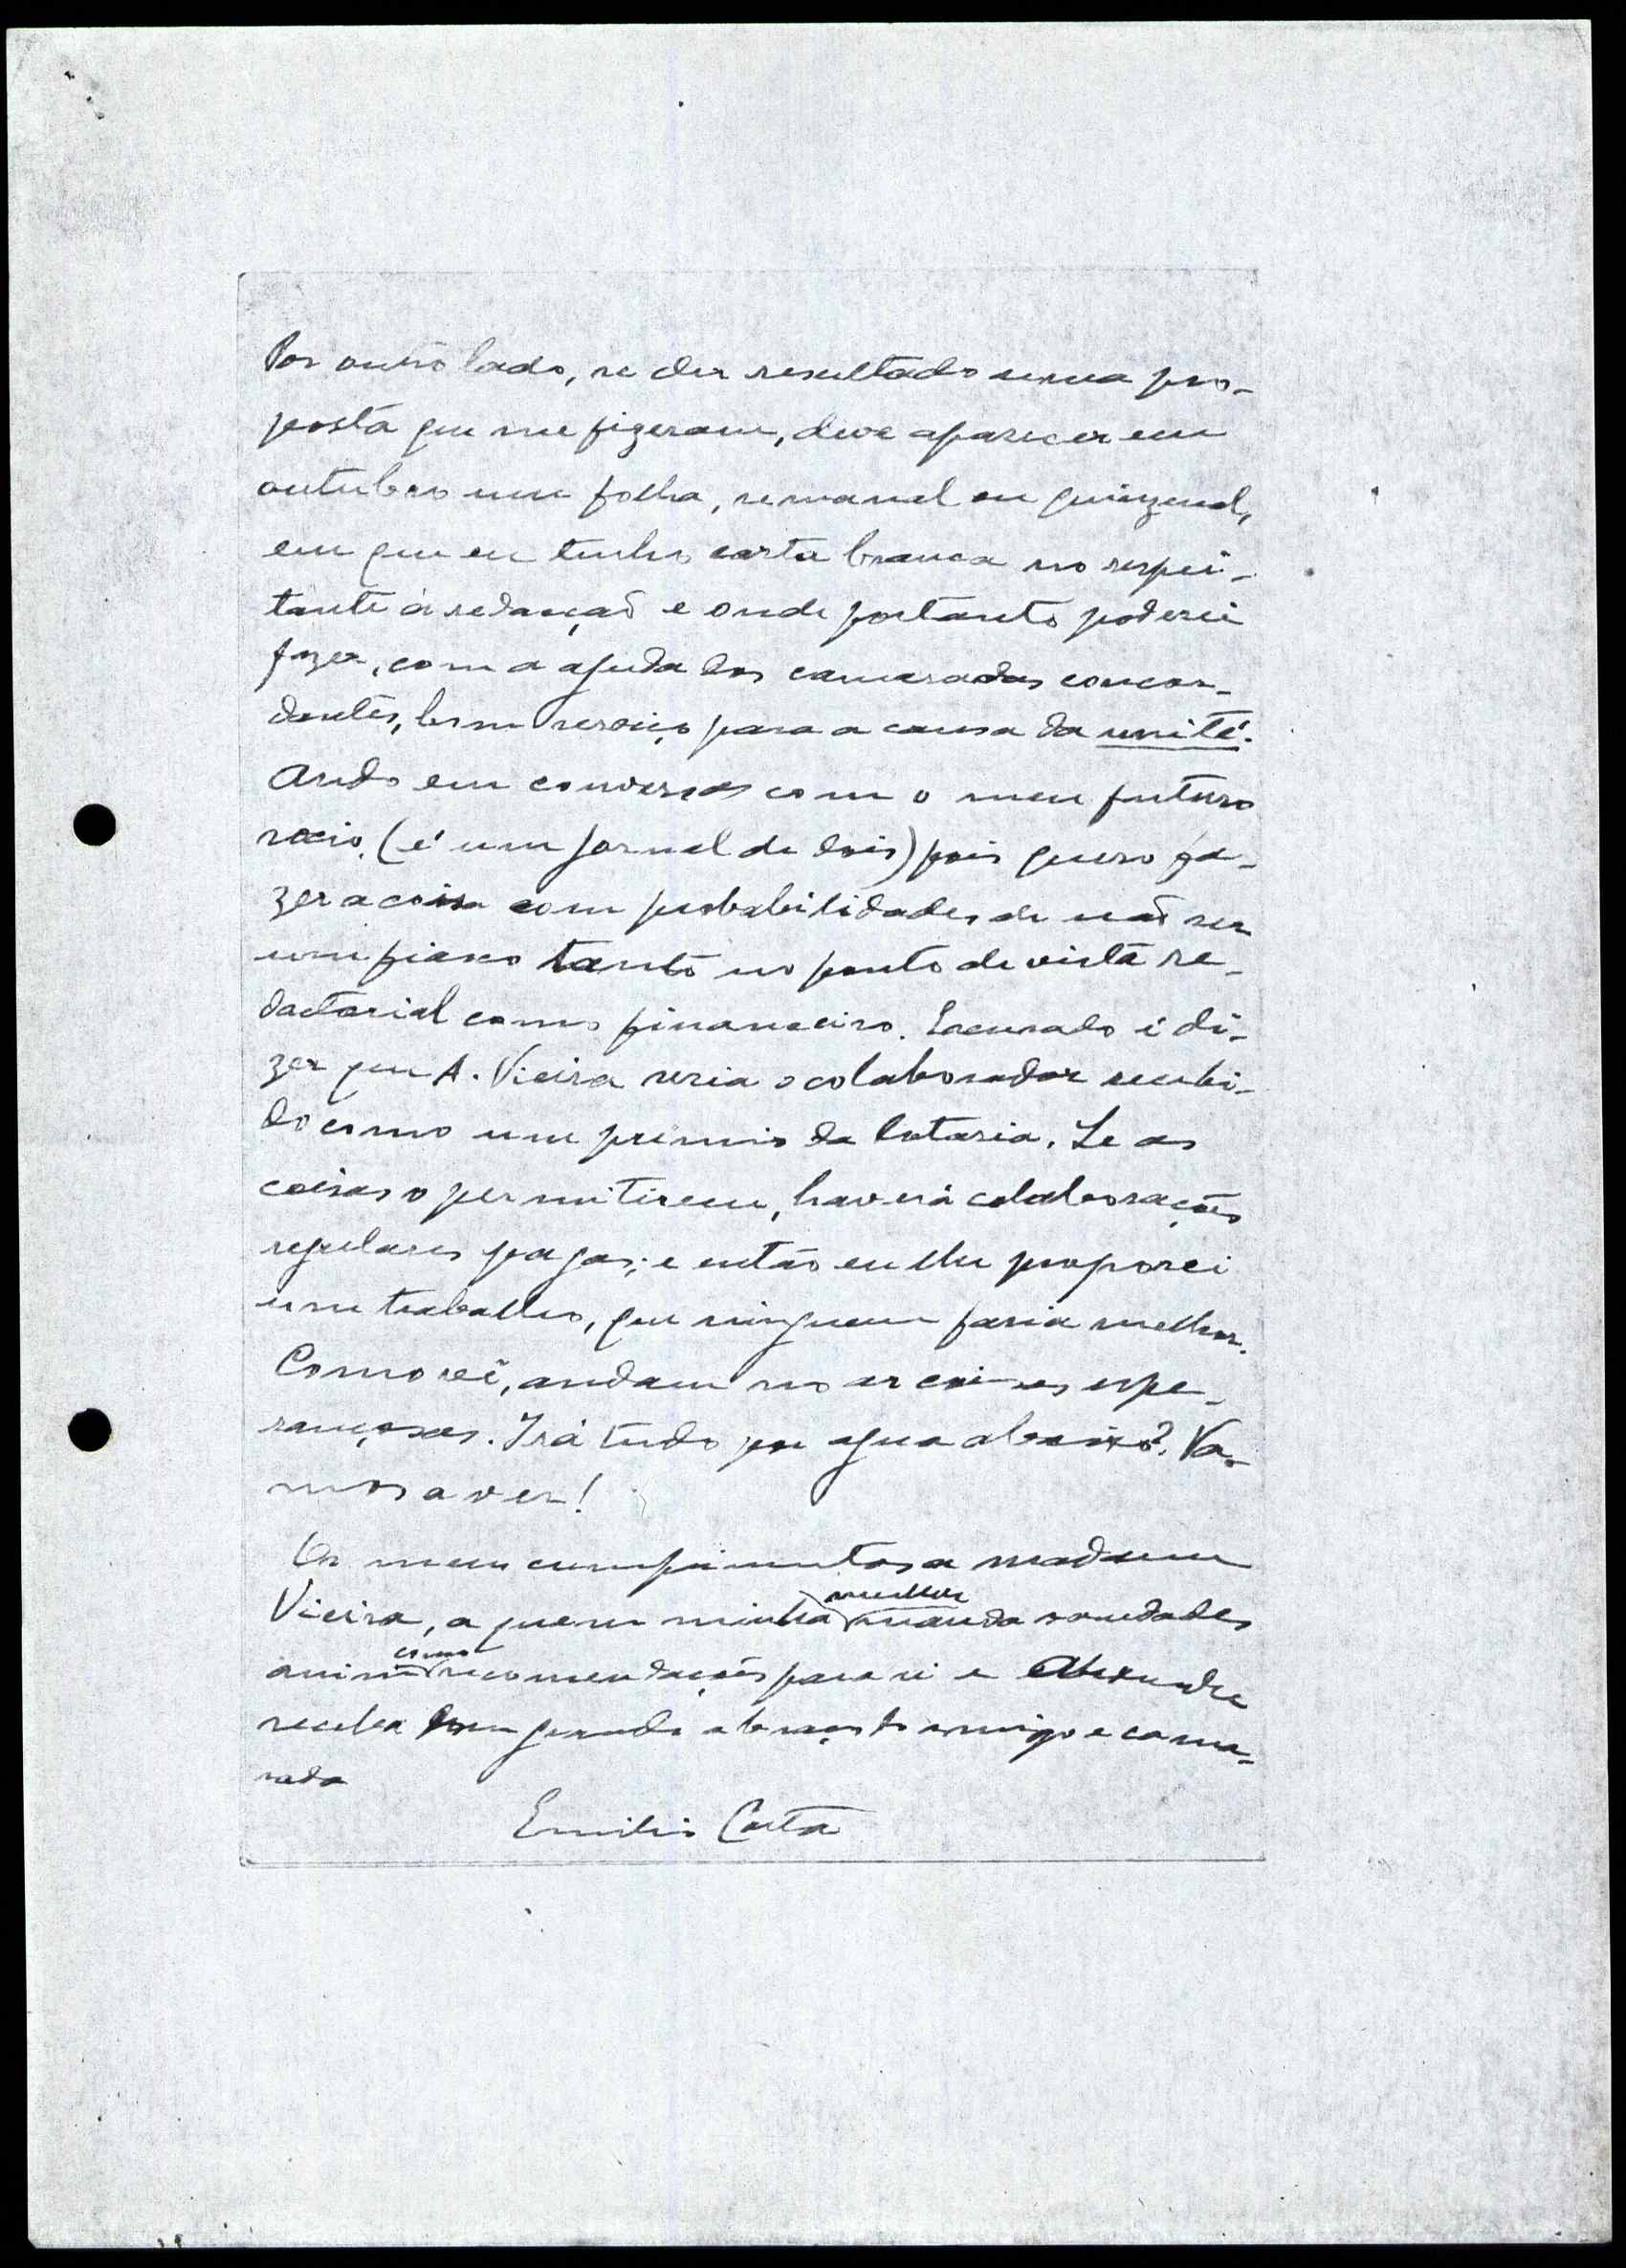 Por outro lado, se der resultado uma pro-
posta que me fizeram, deve aparecer em
outubro uma folha, semanal ou quinzenal,
em que eu tenho carta branca no respei-
tante à redacção e onde portanto poderei
fazer, com a ajuda dos camaradas concor-
dantes, bom serviço para a causa da unité.
Ando em conversas com o meu futuro
socio (é um jornal de dois) pois quero fa-
zer a coisa com probabilidades de não ser
um fiasco tanto no ponto de vista re-
dactorial como financeiro. Escusado é di-
zer que A. Vieira seria o colaborador recebi-
do como um premio da lotaria. Se as
coisas o permitirem, haverá colaborações
regulares pagas; e então eu lhe proporei
um trabalho, que ninguem faria melhor.
Como vê, andam no ar coisas espe-
rançosas. Irá tudo por agua abaixo? Va-
mos a ver!
Os meus cumprimentos a madame
Vieira, a quem minha mulher manda saudades
assim como recomendações para si e Alexandre
receba um grande abraço do amigo e cama-
rada
Emilio Costa